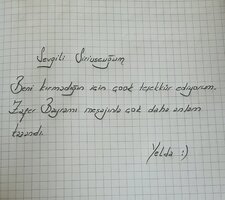 Sevgili Siriuseyğum
Beni kırmadığın için çoook teşekkür ediyorum.
Zafer Bayramı mesajında çok daha anlam
kazandı.
Yelda :)